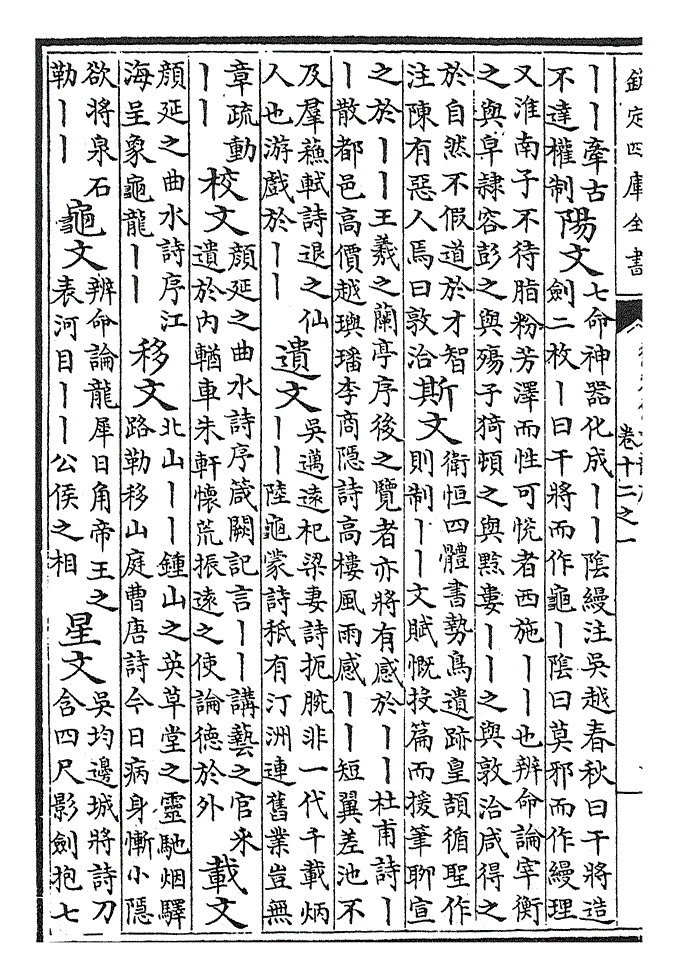 欽定四庫全書
卷十二之一
丨丨牽古不達權制陽文七命神器化成丨丨陰縵注吳越春秋曰干將造劍二枚丨曰干將而作龜丨陰曰莫邪而作縵理
又淮南子不待脂粉芳澤而性可悦者西施丨丨也辨命論宰衡之與皁隷容彭之與殤子猗頓之與黔婁丨丨之與敦洽咸得之
於自然不假道於才智注陳有惡人焉曰敦洽斯文衛恒四體書勢鳥遺跡皇頡循聖作則制丨丨文賦慨投篇而援筆聊宣
之於丨丨王羲之蘭亭序後之覽者亦將有感於丨丨杜甫詩丨丨散都邑高價越璵璠李商隱詩高樓風雨感丨丨短翼差池不
及羣蘓軾詩退之仙人也游戲於丨丨遺文吳邁遠杞梁妻詩扼腕非一代千載炳丨丨陸龜蒙詩秪有汀洲連舊業豈無
章疏動丨丨校文顔延之曲水詩序箴闕記言丨丨講藝之官采遺於内輶車朱軒懷荒振遠之使論德於外載文
顔延之曲水詩序江海呈象龜龍丨丨移文北山丨丨鍾山之英草堂之靈馳烟驛路勒移山庭曹唐詩今日病身慚小隱
欲將泉石勒丨丨龜文辨命論龍犀日角帝王之表河目丨丨公侯之相星文吳均邊城將詩刀含四尺影劍抱七